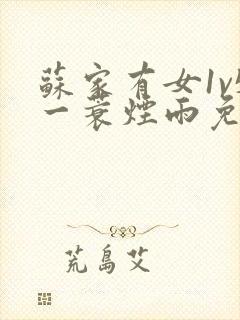 蘇家有女1v
一蓑煙雨免
荒島艾